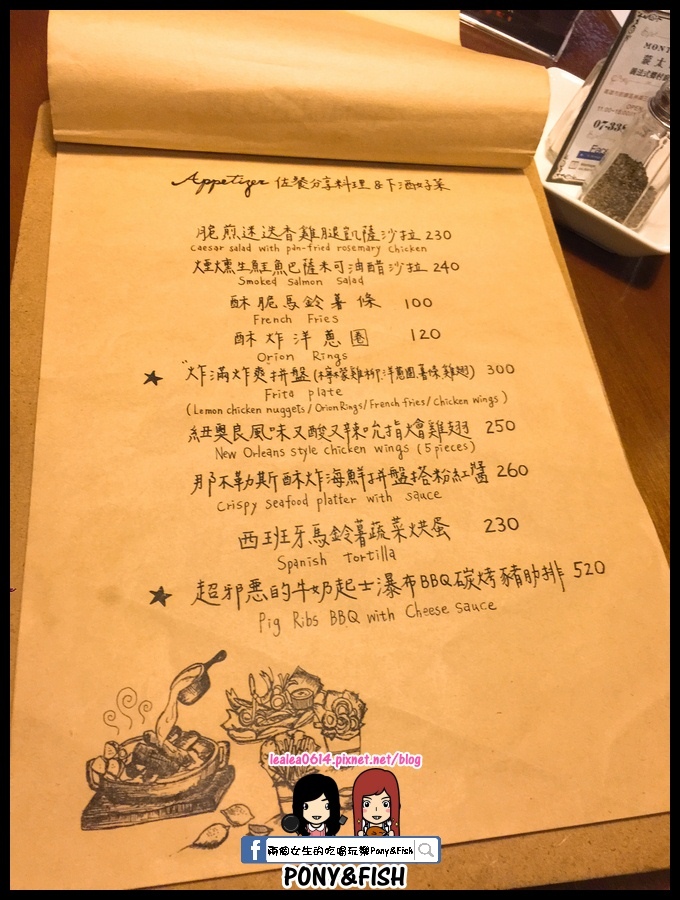 Appetizer 佐餐分享料理 & 下酒好菜
脆煎迷迭香雞腿凱薩沙拉 230
caesar salad with pan-fried rosemary chicken
煙燻生鮭魚巴薩米可油醋沙拉 240
Smoked Salmon Salad
酥脆馬鈴薯條 100
French Fries
酥炸洋蔥圈 120
Orion Rings
★ "炸滿炸爽拼盤 (檸檬雞柳.洋蔥圈.薯條.雞翅) 300
Frita plate
(Lemon chicken nuggets/Orion Rings/French fries/Chicken wings)
紐奧良風味又酸又辣吮指燴雞翅 250
New Orleans style chicken wings (5 pieces)
那不勒斯酥炸海鮮拼盤搭粉紅醬 260
Crispy seafood platter with sauce
西班牙馬鈴薯蔬菜烘蛋 230
Spanish Tortilla
★ 超邪惡的牛奶起士瀑布BBQ碳烤豬肋排 520
Pig Ribs BBQ with Cheese sauce
MONT
OPEN
07-335
lealea0614.pixnet.net/blog
f 兩個女生的吃喝玩樂Pony&Fish
PONY&FISH